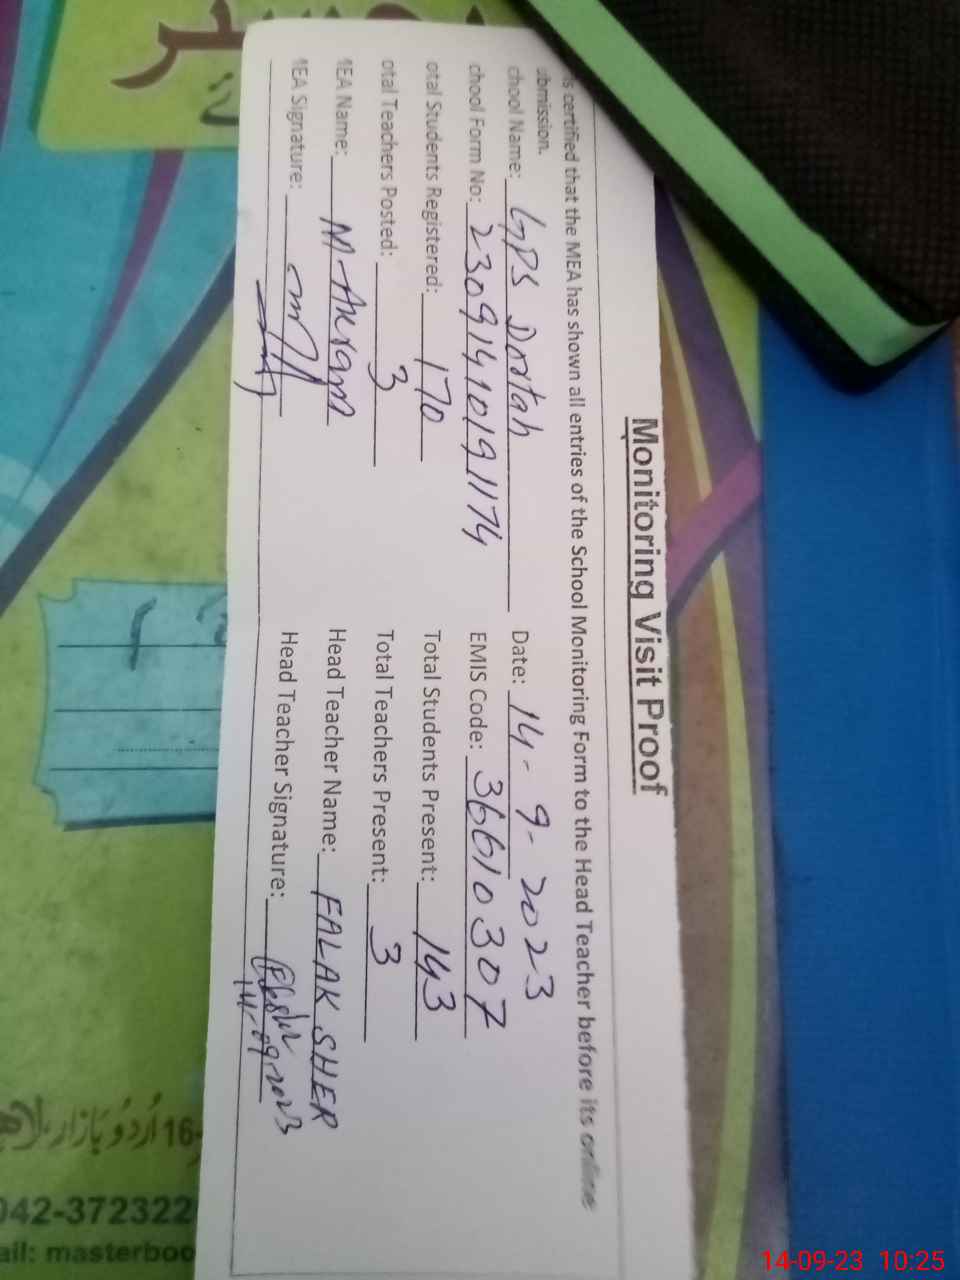 Monitoring Visit Proof
is certified that the MEA has shown all entries of the School Monitoring Form to the Head Teacher before its online
bmission.
chool Name: GPS Dortah Date: 14-9-2023
chool Form No: 2309141019 1174 EMIS Code: 36610307
otal Students Registered: 170 Total Students Present: 143
otal Teachers Posted: 3 Total Teachers Present: 3
MEA Name: M-Akram Head Teacher Name: FALAK SHER
MEA Signature: Head Teacher Signature:
14-09-2023
16- اُردُو بَازار
042-372322
ail: masterboo
14-09-23 10:25